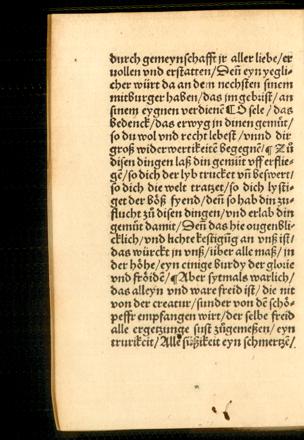 durch gemeynschafft jr aller liebe/er
uollen vnd erstatten/Deñ eyn yegli-
cher würt da an dem nechsten sinem
mitburger haben/das jm gebrist/an
sinem eygnen verdienẽ ¶ O sele/das
bedenck/das erwyg in dinen gemüt/
so du wol vnd recht lebest/vnnd dir
groß widerwertikeitẽ begegnẽ/¶ Zů
disen dingen laß din gemüt vff erflie-
gẽ/so dich der lyb trucket vñ beswert/
so dich die welt tratzet/so dich lysti-
get der böß fyend/deñ so hab din zu-
flucht zů disen dingen/vnd erlab din
gemüt damit/Deñ das hie ougenbli-
cklich/vnd lichte kestigũg an vnß ist/
das würckt in vnß/über alle maß/in
der höhe/eyn einige burdy der glorie
vnd fröidẽ/¶ Aber sytmals warlich/
das alleyn vnd ware freid ist/die nit
von der creatur/sunder von dẽ schö-
pffer empfangen wirt/der selbe freid
alle ergetzunge sust zůgemeßen/eyn
trurikeit/Alle süßikeit eyn schmertzẽ/